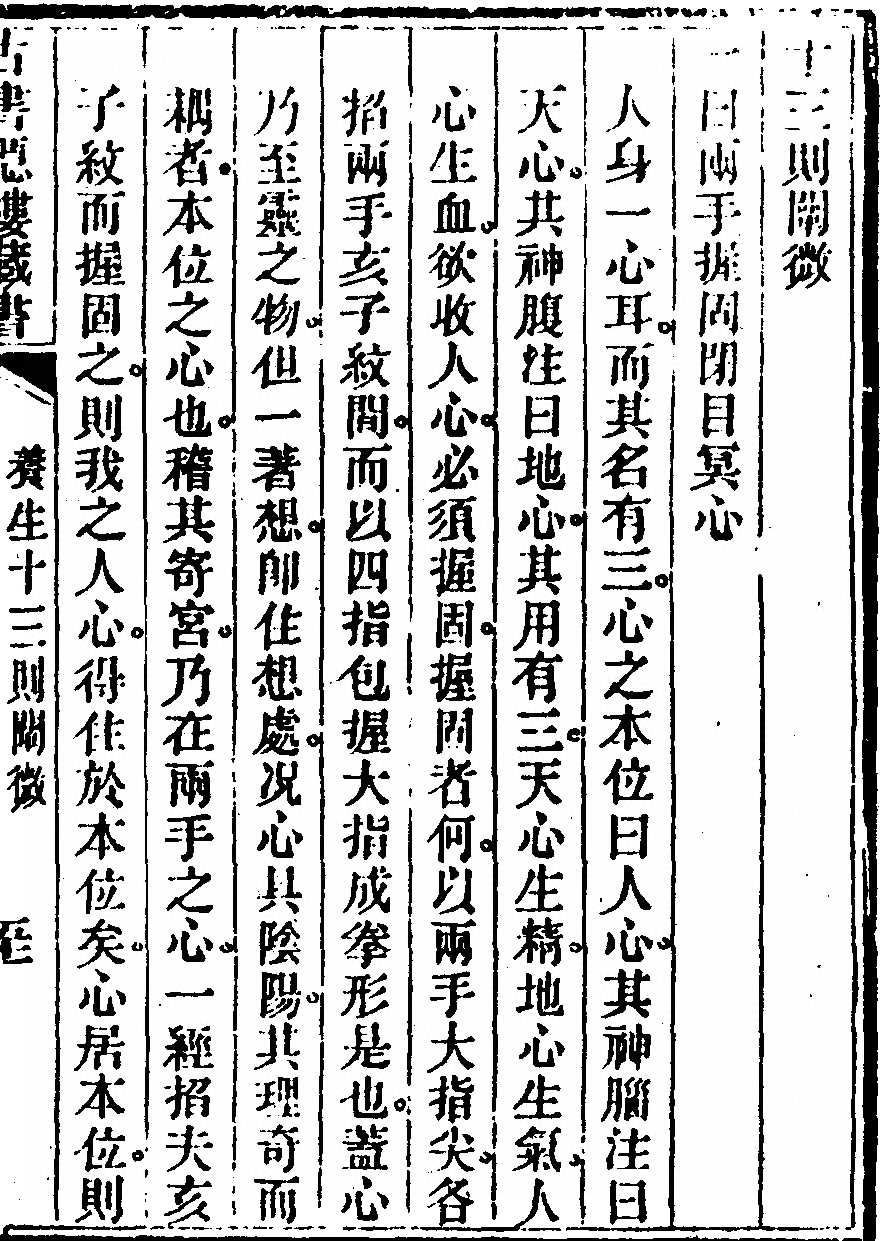 十三則闡微
一曰兩手握固閉目冥心
人身一心耳。而其名有三。心之本位曰人心。其神腦注曰
天心。其神腹注曰地心。其用有三。天心生精。地心生氣。人
心生血。欲收人心。必須握固。握固者何。以兩手大指尖。各
掐兩手亥子紋間。而以四指包握大指成拳形是也。蓋心
乃至靈之物。但一著想。卽住想處。况心具陰陽。其理奇而
耦者。本位之心也。稽其寄宮。乃在兩手之心。一經掐夫亥
子紋而握固之。則我之人心。得住於本位矣。心居本位。則
古書隱樓藏書
養生十三則闡微